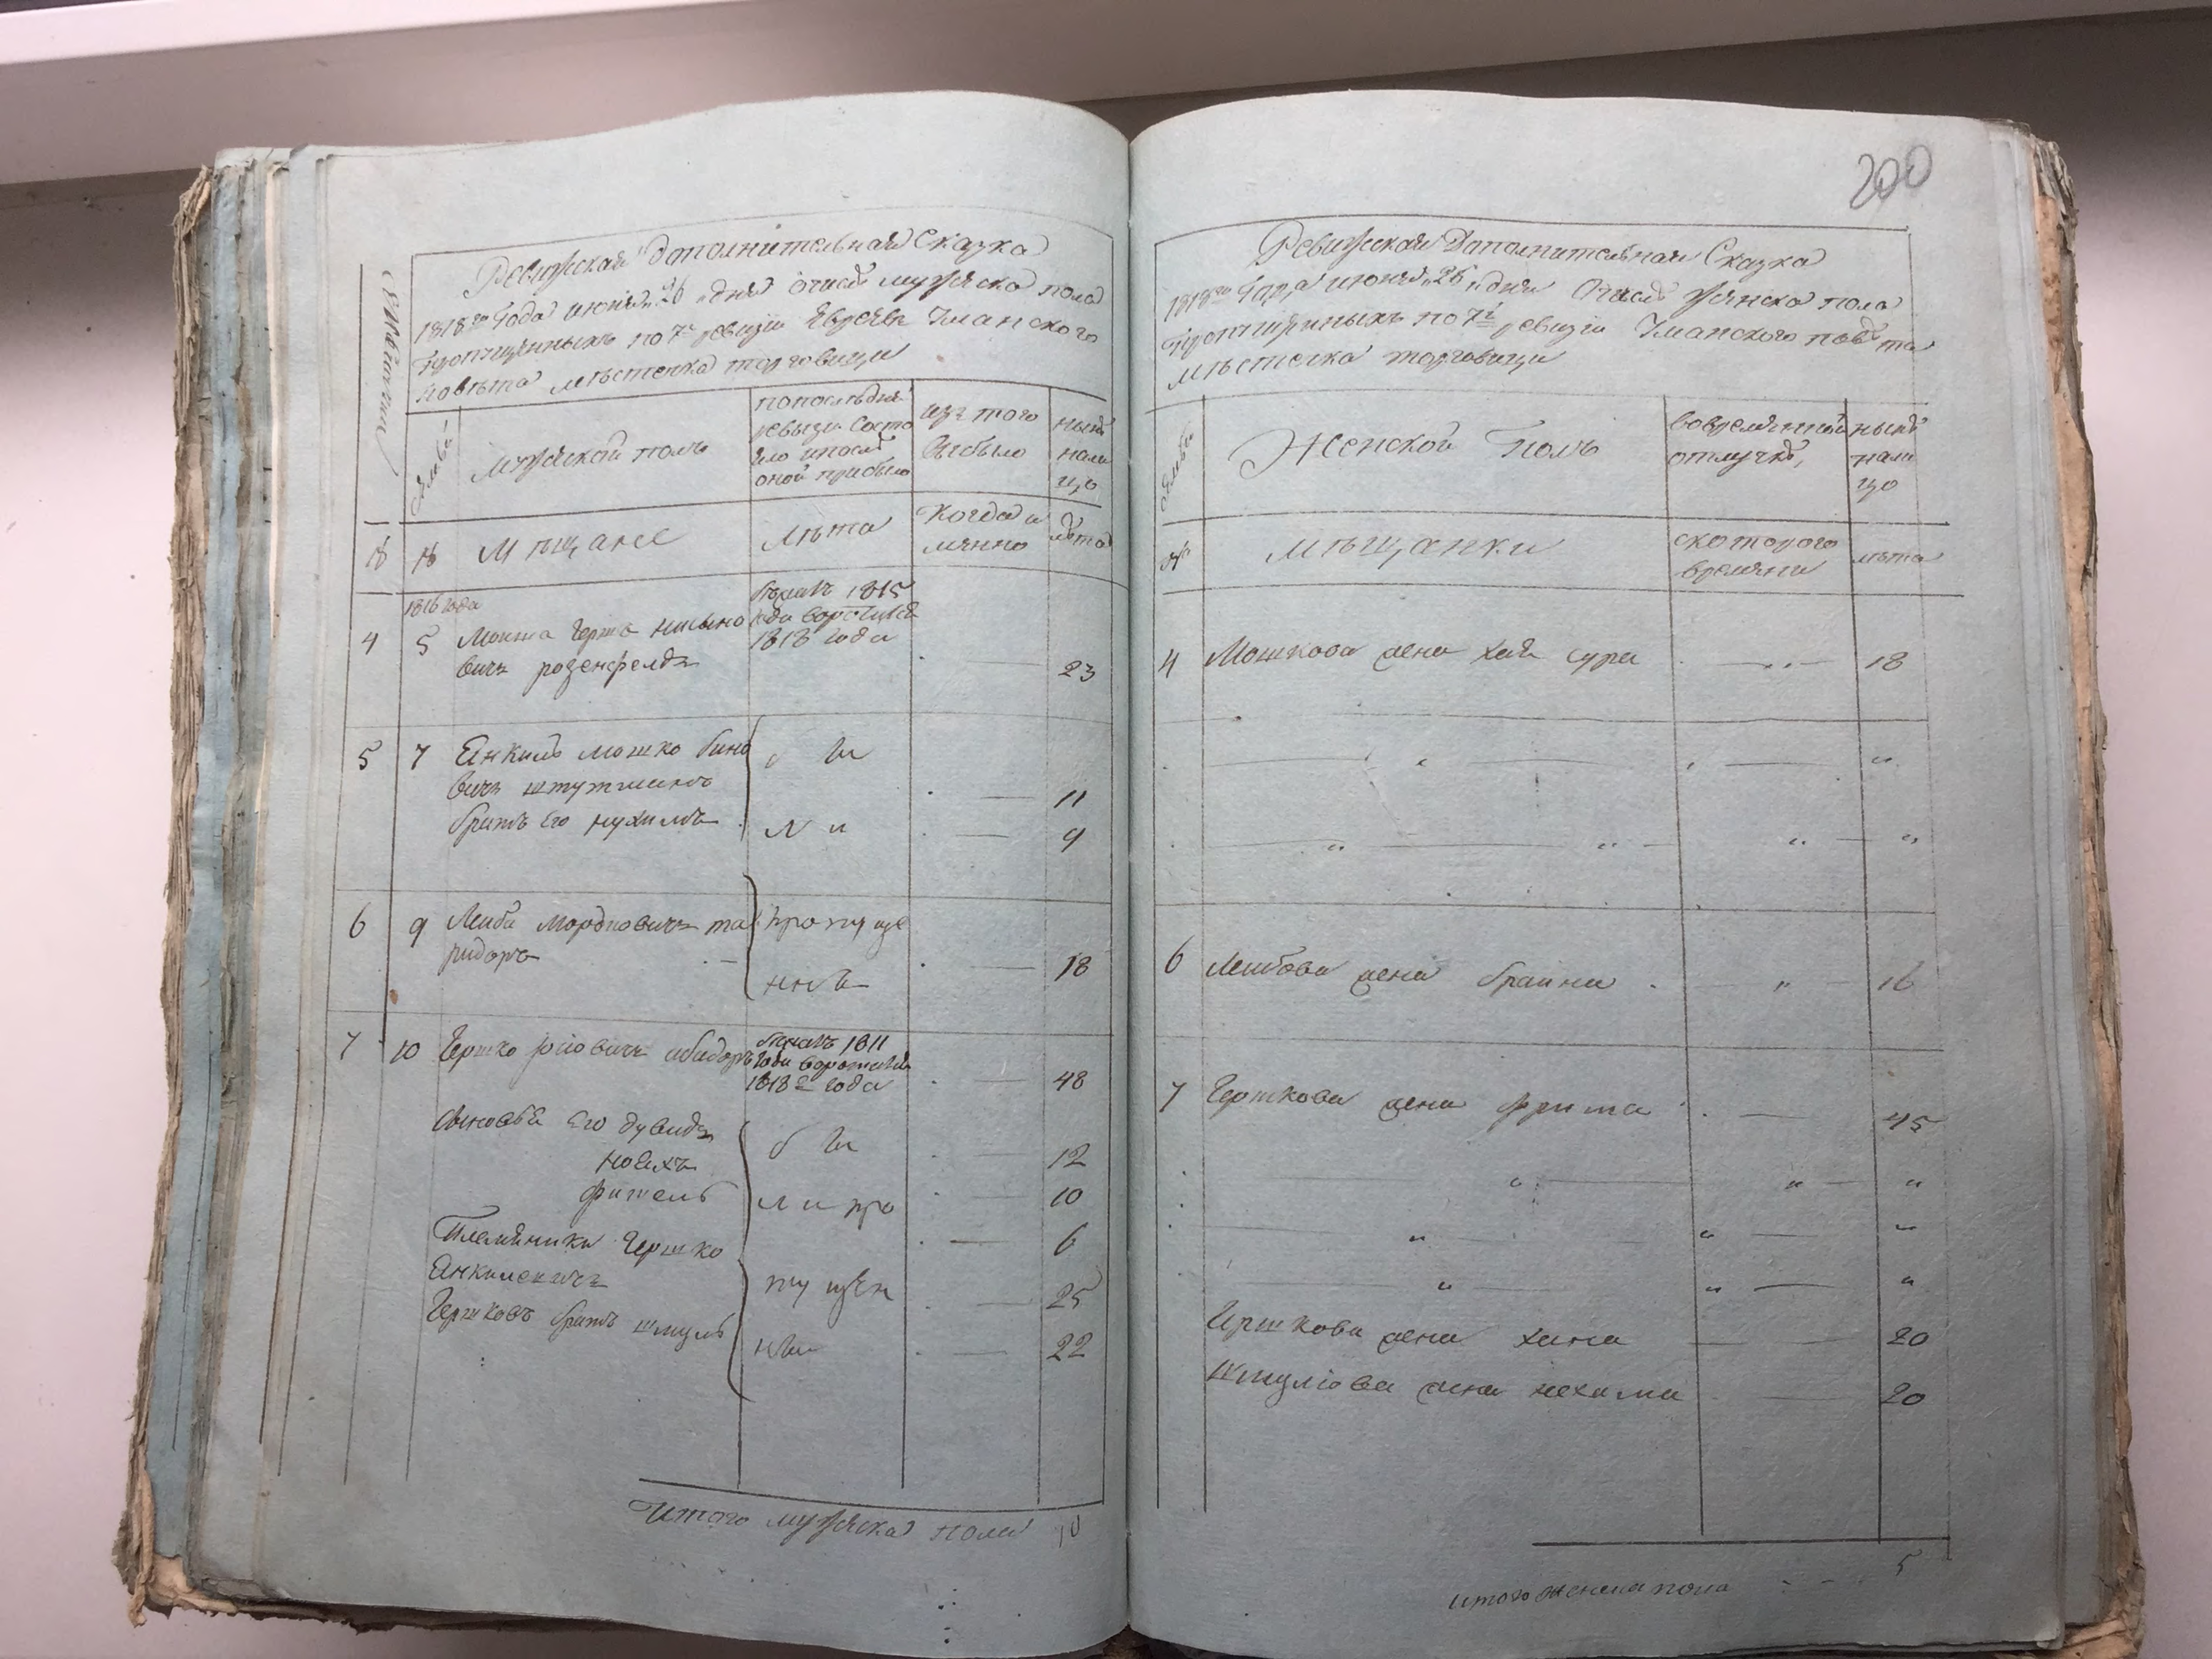 Ревизская Дополнительная Сказка
1818го Года июня 26 дня о числѣ мужеска пола
пропущенныхъ по 7й ревизіи Евреевъ Уманского
повѣта мѣстечка торговици
семьи
Мужской полъ
попослѣдней
ревизіи состо
яло и послѣ
оной прибыло
изъ того
выбыло
нынѣ
нали
цо
№ № Мѣщане
Лѣта
Когда и
мянно
лѣта
1816 года
4 5 Мошко Гершъ
вичъ розенфелдъ
бѣжалъ 1815
года воротился
1818 года
23
5 7 Янкиль мошко
вичъ
11
братъ Его нухимъ
9
бы
ли
6 9 Лейба Мордковичъ
пропуще
ны
18
7 10 Гершко
бѣжалъ 1811
года воротился
1818го года
48
Сыновья Его дувидъ
12
10
6
Племянники Гершко
Янкилевичъ
25
Гершковъ братъ шмуль
22
бы
ли про
пущен
ны
Итого мужеска пола 10
200
Ревизская Дополнительная Сказка
1818го Года июня 26 дня О числѣ женска пола
пропущенныхъ по 7й ревизіи Уманского повѣта
мѣстечка торговици
семьи
Женской Полъ
вовременной
отлучкѣ,
нынѣ
нали
цо
№ мѣщанки
скоторого
времяни
лѣта
4 Мошкова жена хая сура 18
6 Лейбова жена брайна 16
7 Гершкова жена 45
Гершкова жена хана 20
Шмулiова жена нехама 20
итого женска пола 5